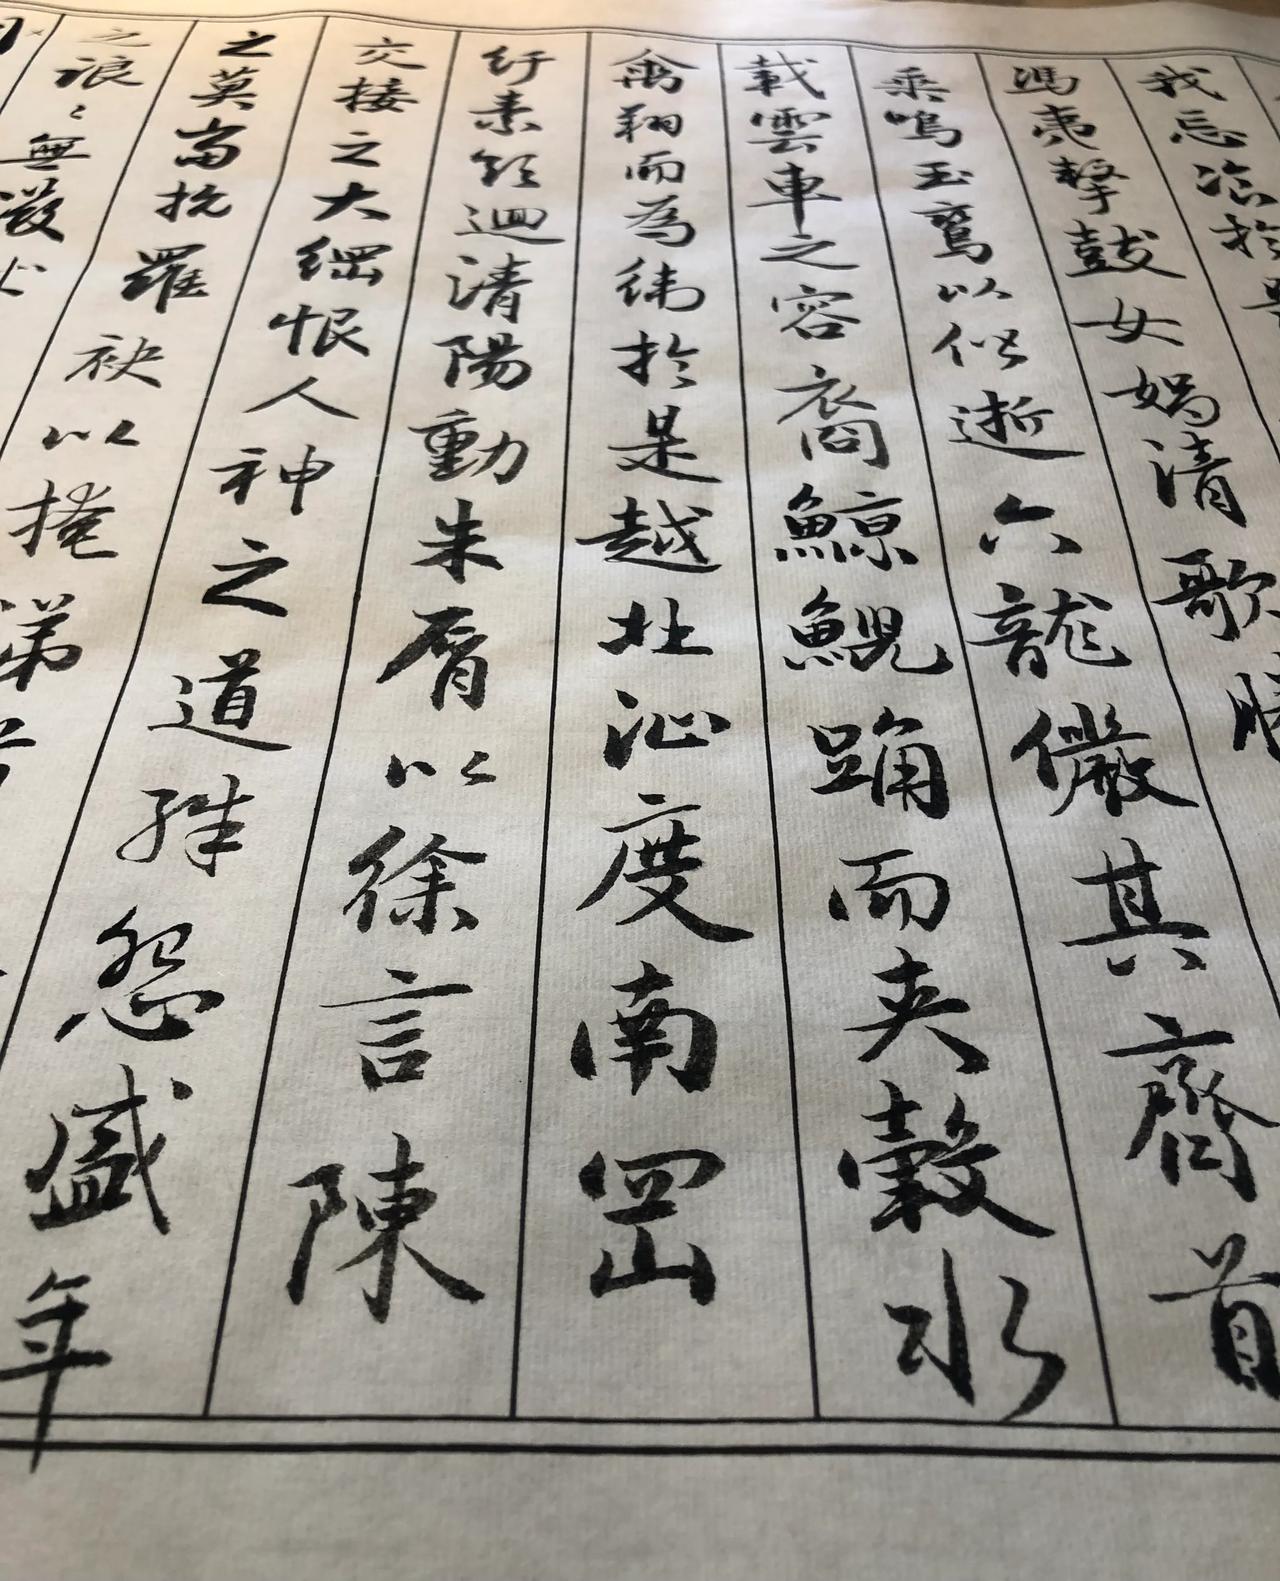 我忌
馮夷擊鼓女媧清歌騰
乘鳴玉鸞以偕逝六龍儼其齊首
載雲車之容裔鯨鯢踊而夾轂水
禽翔而為衛於是越北沚度南岡
紆素領迴清陽動朱脣以徐言陳
交接之大綱恨人神之道殊怨盛年
之莫當抗羅袂以掩涕兮
之浪〻無